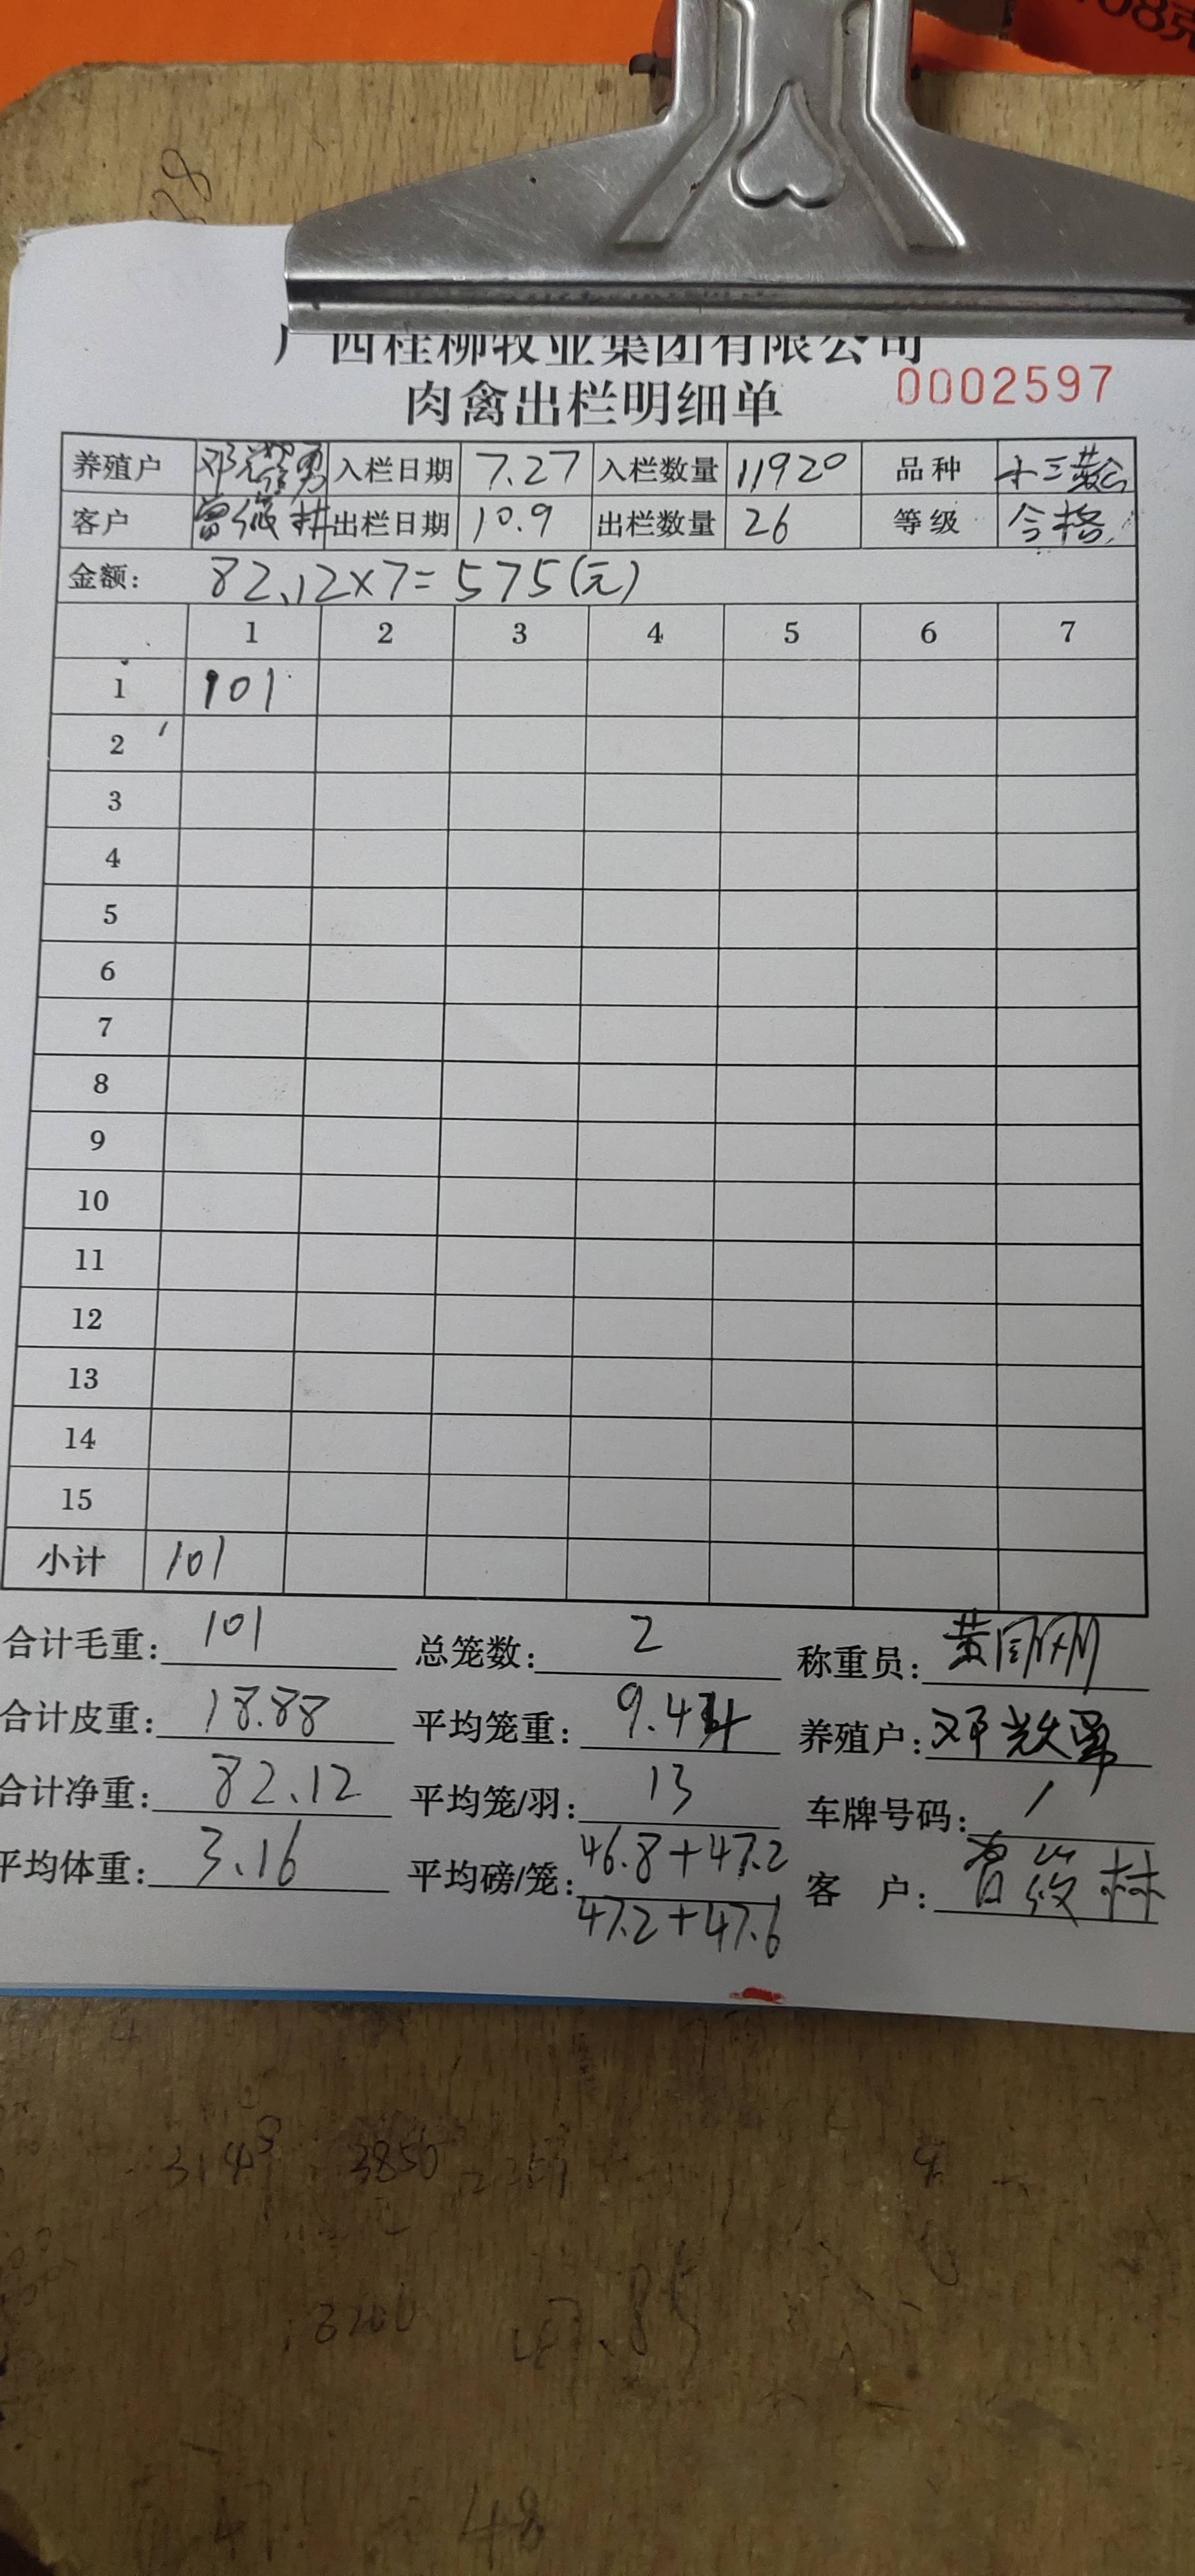 广西桂柳牧业集团有限公司
肉禽出栏明细单 0002597
养殖户 邓 勇 入栏日期 7.27 入栏数量 11920 品种 十三黄
客户 曾 林 出栏日期 10.9 出栏数量 26 等级 合格
金额: 82.12×7=575(元)
1 2 3 4 5 6 7
1 101
2
3
4
5
6
7
8
9
10
11
12
13
14
15
小计 101
合计毛重: 101 总笼数: 2 称重员: 黄刚
合计皮重: 18.88 平均笼重: 9.44 养殖户: 邓 勇
合计净重: 82.12 平均笼/羽: 13 车牌号码: /
平均体重: 3.16 平均磅/笼: 46.8+47.2 客 户: 曾 林
47.2+47.6
3850
3200
48